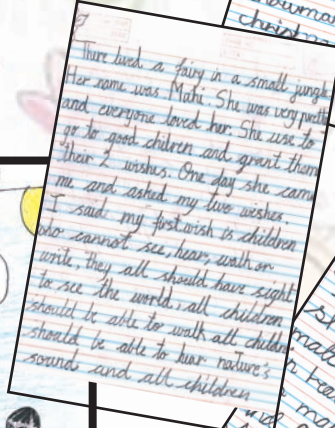 There lived a fairy in a small jungle
Her name was Mahi. She was very pretty
and everyone loved her. She use to
go to good chilren and grent them
their 2 wishes. One day she came
me and asked my two wishes.
I said my first wish is children
who cannot see, hear, walk or
write, they all should have sight
to see the world, all children
should be able to walk all childr
should be able to hear nature's
sound and all children